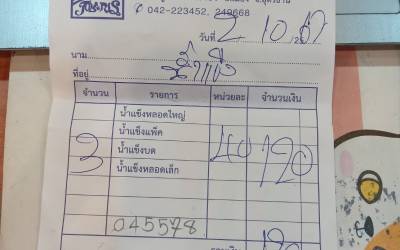 042-223452, 249668
วันที่ 2 10 /2567
นาม
ที่อยู่ น้ำแข็ง
จำนวน รายการ หน่วยละ จำนวนเงิน
น้ำแข็งหลอดใหญ่
น้ำแข็งแพ็ค
3 น้ำแข็งบด 40 120
น้ำแข็งหลอดเล็ก
045578
120